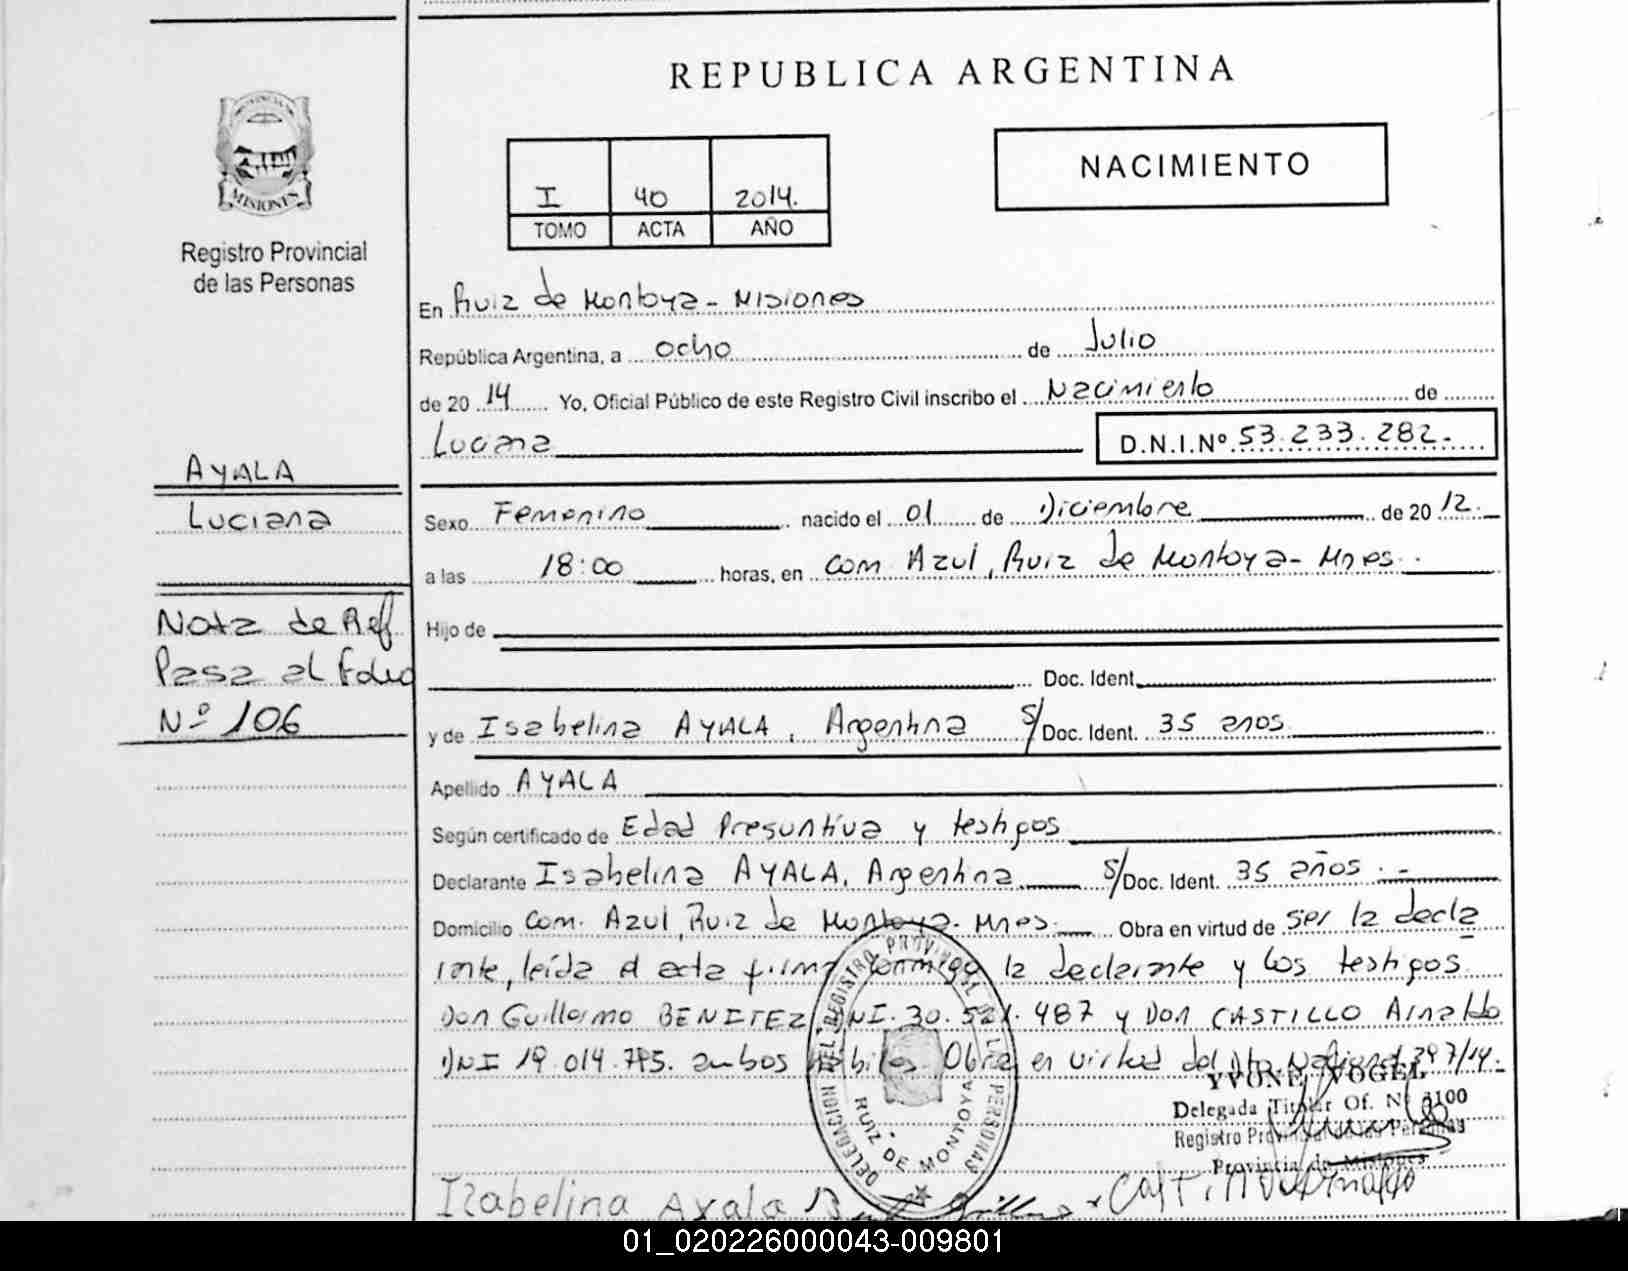 REPUBLICA ARGENTINA
MISIONES
Registro Provincial
de las Personas
I 40 2014.
TOMO ACTA AÑO
NACIMIENTO
En Ruiz de Montoya - Misiones
República Argentina, a ocho de Julio
de 20 14 Yo, Oficial Público de este Registro Civil inscribo el Nacimiento de
Luciana D.N.I.Nº 53.233.282.-
AYALA
Luciana
Sexo Femenino nacido el 01 de Diciembre de 20 12.
a las 18:00 horas, en Com Azul, Ruiz de Montoya - Mnes.
Nota de Ref
Pasa al Folio
Nº 106
Hijo de
Doc. Ident.
y de Isabelina AYALA, Argentina S/Doc. Ident. 35 anos
Apellido AYALA
Según certificado de Edad Presuntiva y testigos
Declarante Isabelina AYALA, Argentina S/Doc. Ident. 35 años . -
Domicilio Com. Azul, Ruiz de Montoya - Mnes. Obra en virtud de ser la decla
rante, leída el acta firma conmigo la declarante y los testigos
Don Guillermo BENITEZ DNI. 30. 487 y Don CASTILLO Arnaldo
DNI 19.014. ambos hábiles. Obra en virtud del 297/14.
YVONE VOGEL
Delegada Titular Of. Nº 3100
Registro Provincial de las Personas
Provincia de Misiones
DELEGACION DEL REGISTRO PROVINCIAL DE LAS PERSONAS
RUIZ DE MONTOYA
Izabelina Axala
01_020226000043-009801